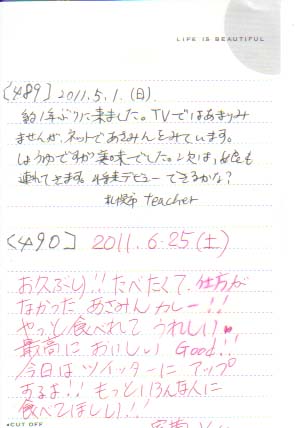 LIFE IS BEAUTIFUL
[489] 2011.5.1.(日)
約1年ぶりに来ました。TVではあまりみ
ませんが、ネットであさみんをみています。
しょうゆですが美味でした。次は、娘も
連れてきます。将来デビューできるかな?
札幌市 teacher
[490] 2011.6.25(土)
お久ぶり!! たべたくて、仕方が
なかった あさみんカレー!!
やっと食べれて うれしい♥
最高に おいしい Good!!
今日は ツイッターに アップ
するよ!! もっといろんな人に
食べてほしい!!
CUT OFF